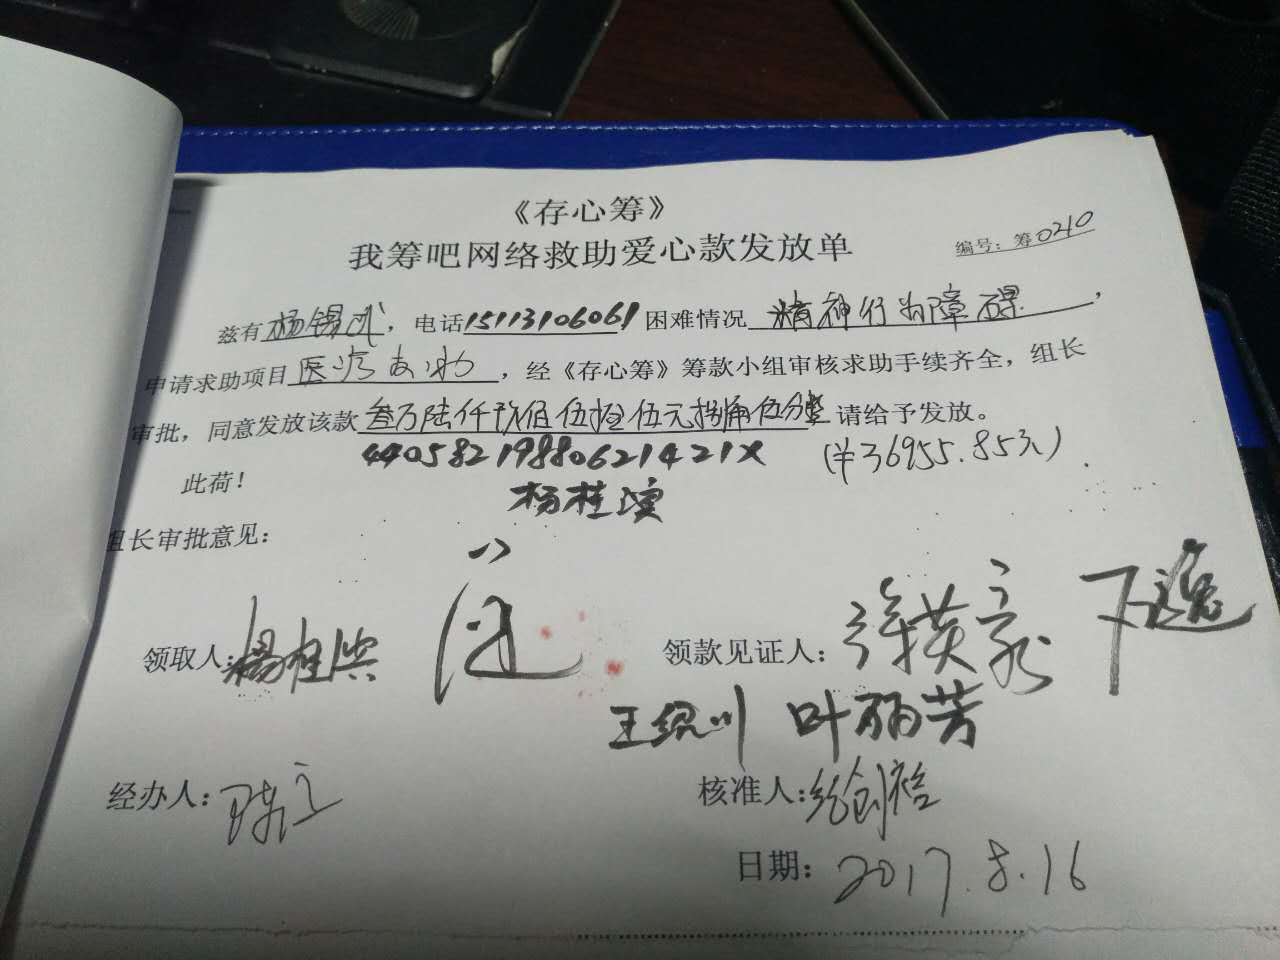 《存心筹》
我筹吧网络救助爱心款发放单
编号：筹0210
兹有杨锡，电话15113106061困难情况 精神行为障碍，
申请求助项目医疗救助，经《存心筹》筹款小组审核求助手续齐全，组长
审批，同意发放该款叁万陆仟玖佰伍拾伍元捌角伍分 请给予发放。
44058219880621421X (¥36955.85元)
此荷！
杨桂滨
组长审批意见：
领取人：杨桂滨
领款见证人：
王绍川 叶丽芳
经办人：陈立
核准人：
日期：2017.8.16